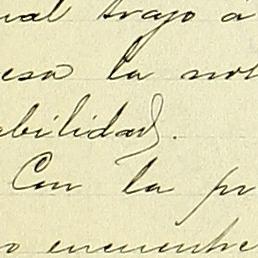 ual trajo á
esa la not
abilidad.
Con la pr
o encuentre